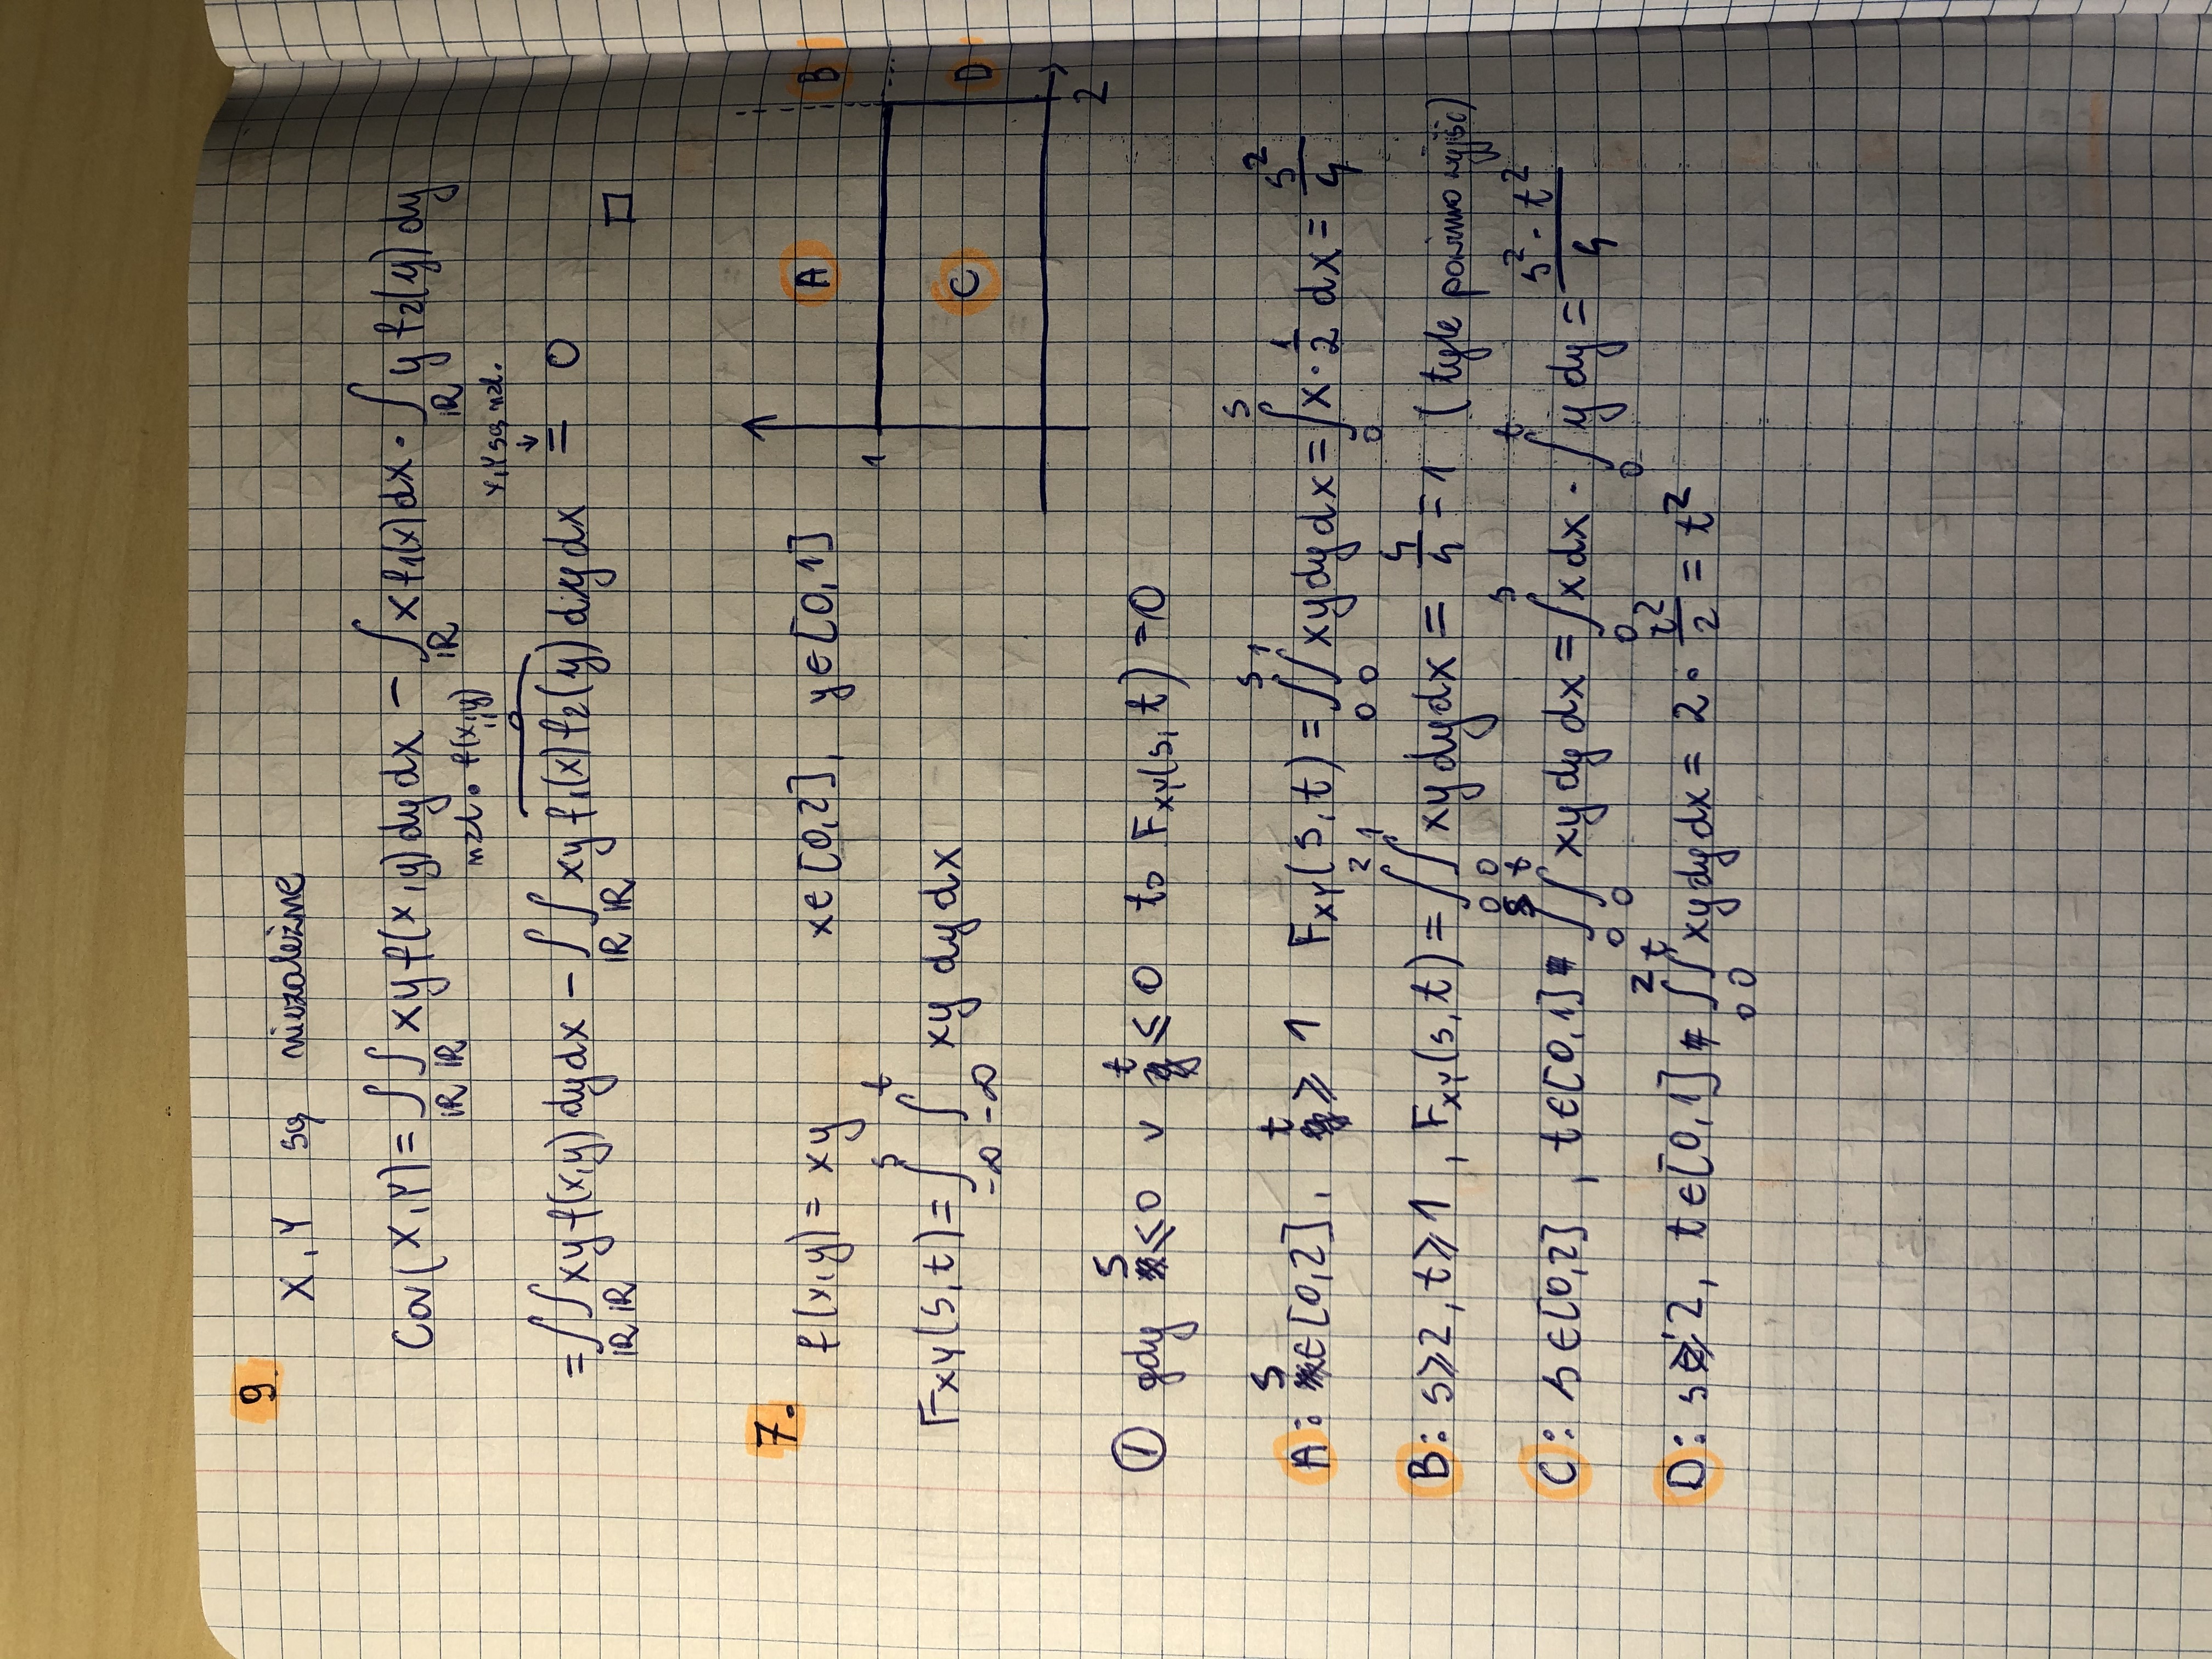 9.
X, Y są niezależne
Cov(X,Y) = ∫_ℝ ∫_ℝ xy f(x,y) dy dx − ∫_ℝ x f₁(x) dx · ∫_ℝ y f₂(y) dy
nzl. f(x,y) X,Y są nzl.
= ∫_ℝ ∫_ℝ xy f(x,y) dy dx − ∫_ℝ ∫_ℝ xy f₁(x) f₂(y) dy dx = 0
□
7.
f(x,y) = xy x∈[0,2], y∈[0,1]
F_XY(s,t) = ∫_{-∞}^{s} ∫_{-∞}^{t} xy dy dx
A B
1
C D
2
① gdy s ≤ 0 ∨ t ≤ 0 to F_XY(s,t) = 0
A: s∈[0,2], t ≥ 1 F_XY(s,t) = ∫_0^s ∫_0^1 xy dy dx = ∫_0^s x · 1/2 dx = s²/4
B: s ≥ 2, t ≥ 1, F_XY(s,t) = ∫_0^2 ∫_0^1 xy dy dx = 4/4 = 1 (tyle powinno wyjść)
C: s∈[0,2], t∈[0,1] = ∫_0^s ∫_0^t xy dy dx = ∫_0^s x dx · ∫_0^t y dy = s² · t²/4
D: s ≥ 2, t∈[0,1] = ∫_0^2 ∫_0^t xy dy dx = 2 · t²/2 = t²